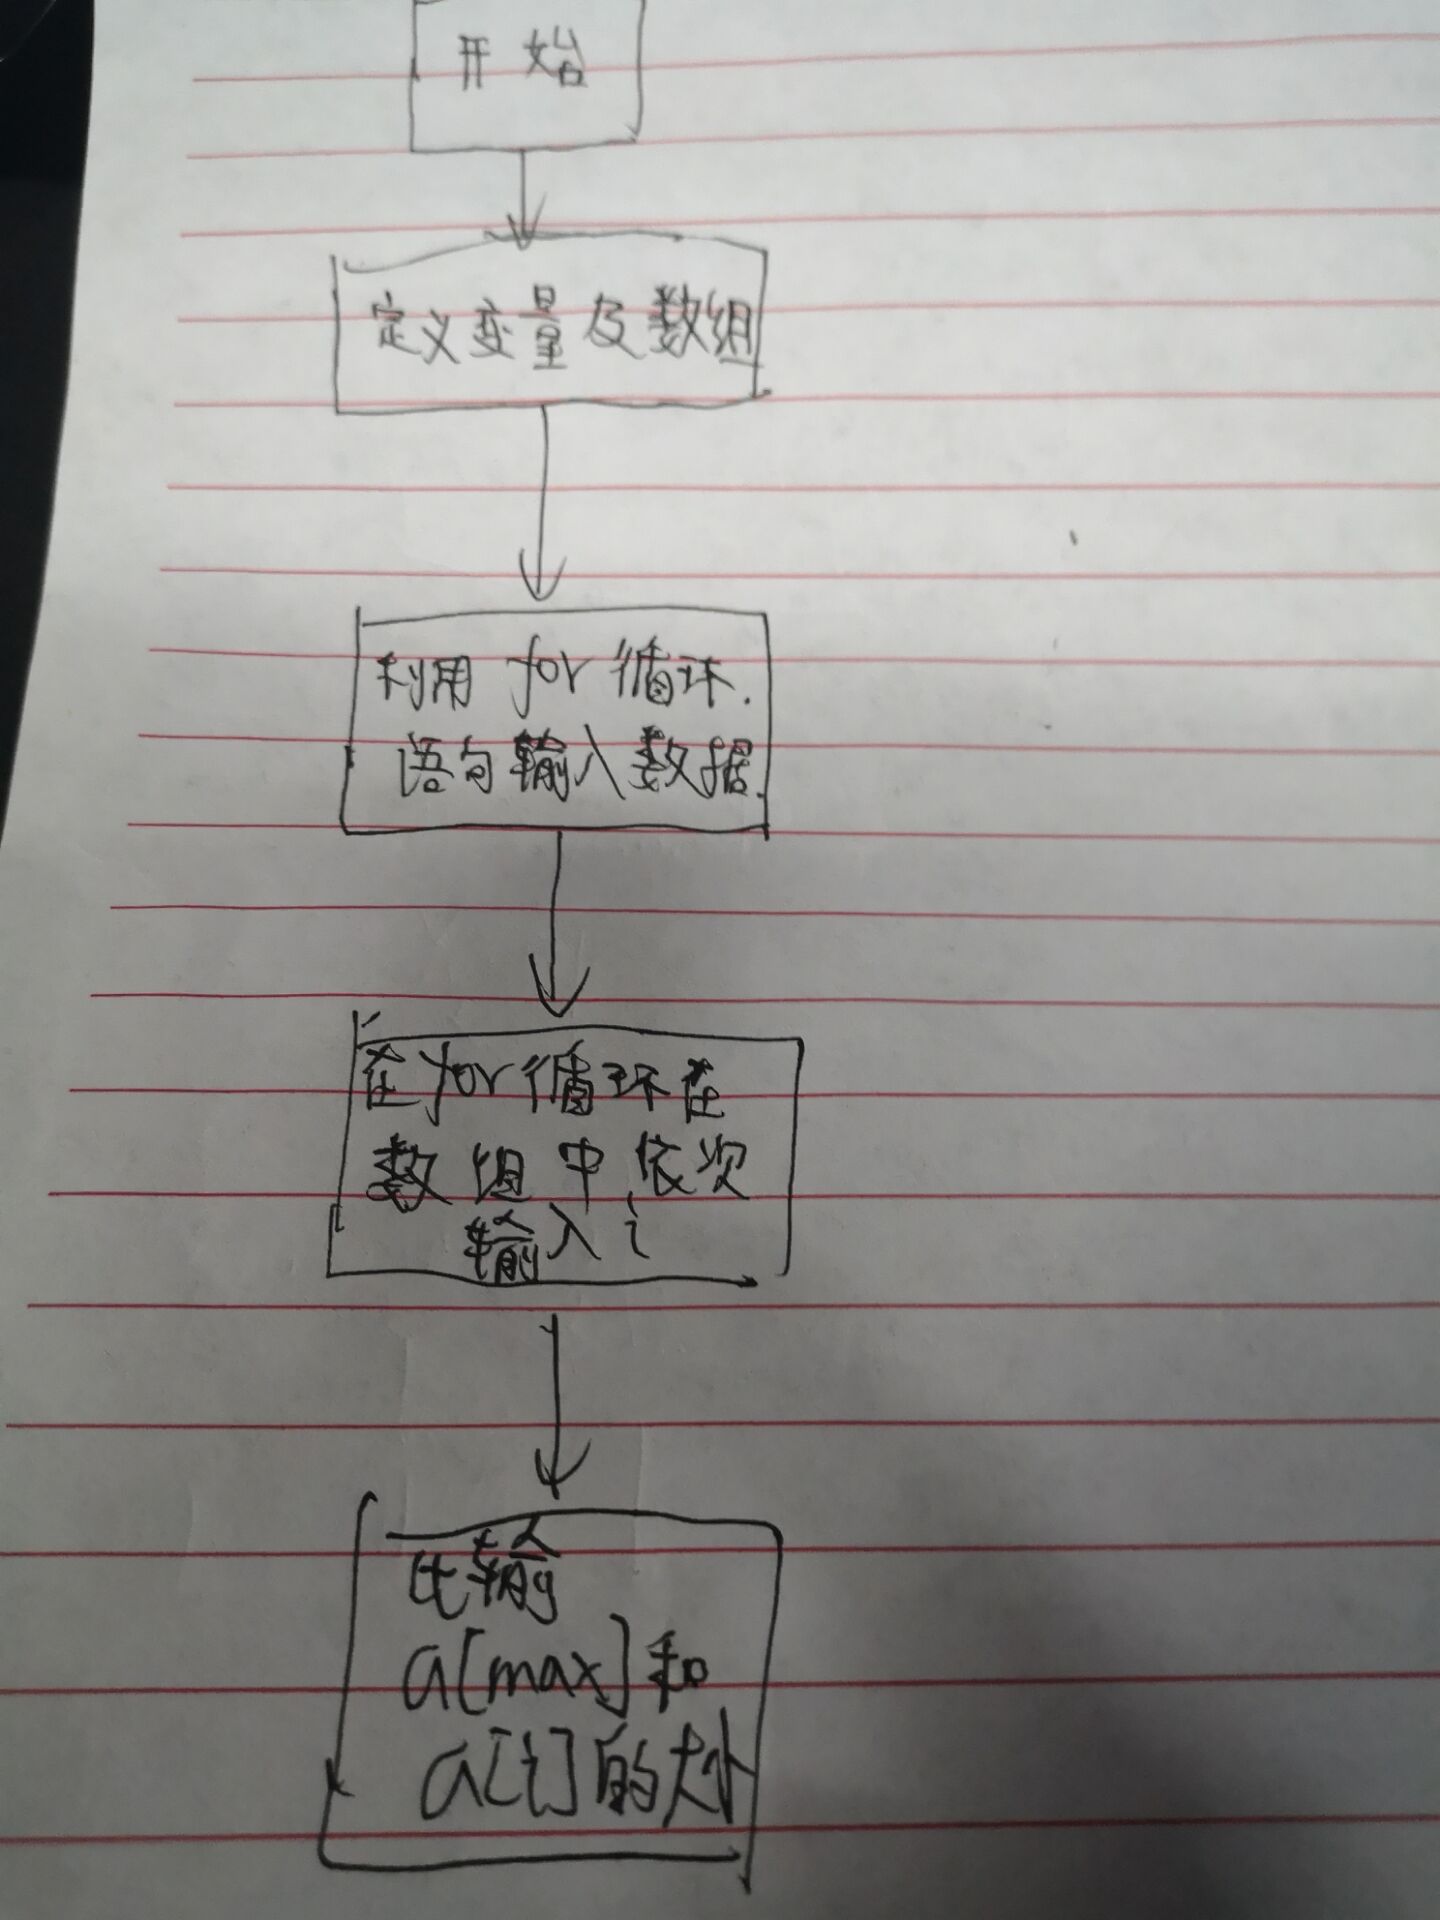 开始
定义变量及数组
利用for循环.
语句输入数据.
在for循环在
数组中依次
输入i
比输
a[max]和
a[t]的大小